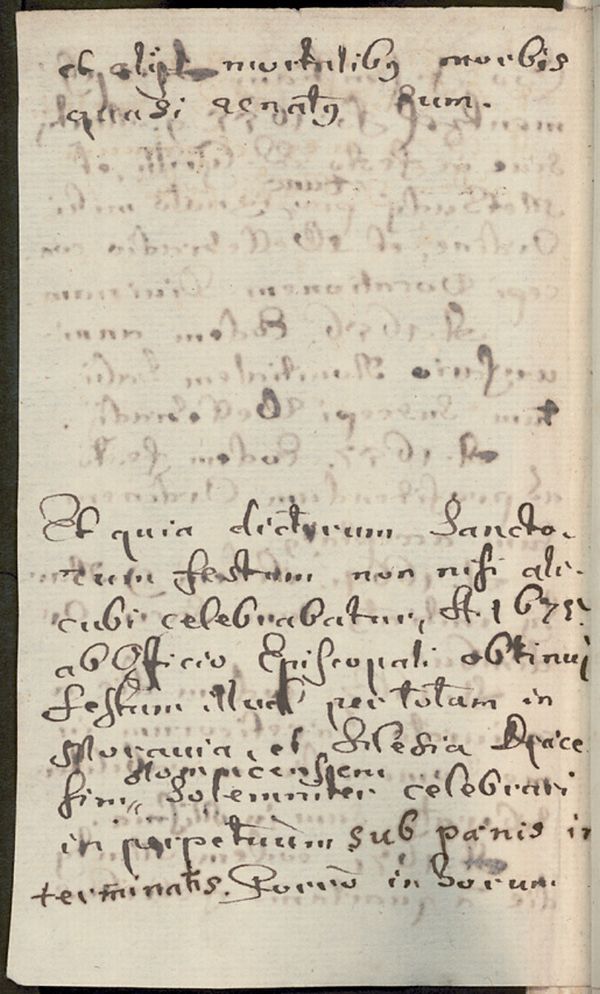 et alijs mortalibꝰ morbis
quasi renatꝰ sum.
Et quia dictorum Sancto-
rum festum non nisi ali-
cubi celebrabatur, A. 1675.
ab Officio Episcopali obtinui
festum illud per totam in
Moravia, et Silesia Diæce
Olomucensem
sim, Solemniter celebrari
in perpetuum sub pænis in
terminatis. Porro in